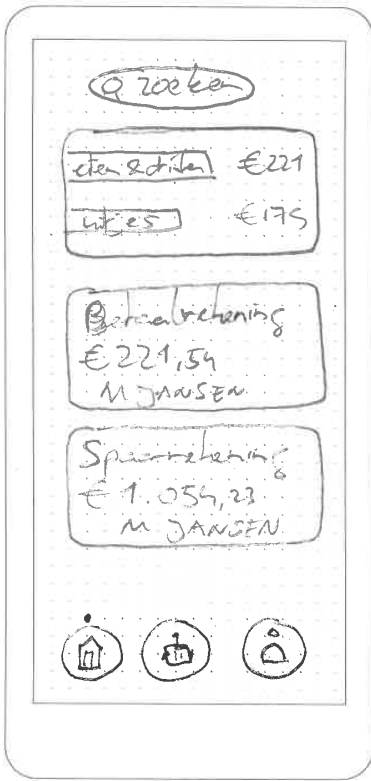 zoeken
eten & drinken €221
uitjes €175
Betaalrekening
€ 221,54
M JANSEN
Spaarrekening
€ 1.054,23
M JANSEN